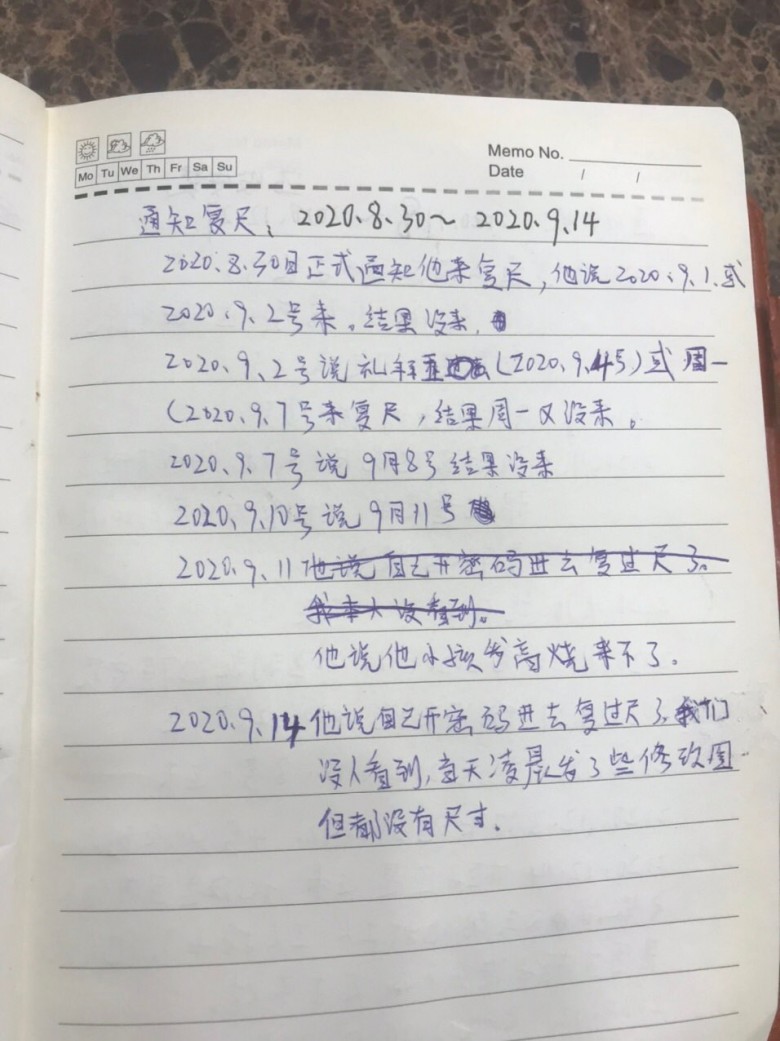 Memo No.
Mo Tu We Th Fr Sa Su
Date / /
通知复尺: 2020.8.30~2020.9.14
2020.8.30日正式通知他来复尺,他说2020.9.1.或
2020.9.2号来。结果没来.
2020.9.2号说礼拜五(2020.9.4号)或周一
(2020.9.7号来复尺,结果周一又没来。
2020.9.7号说9月8号结果没来
2020.9.10号说9月11号
2020.9.11他说自己开密码进去复过尺了。
我本人没看到。
他说他小孩发高烧来不了。
2020.9.14他说自己开密码进去复过尺了.我们
没人看到,当天凌晨发了些修改图.
但都没有尺寸.